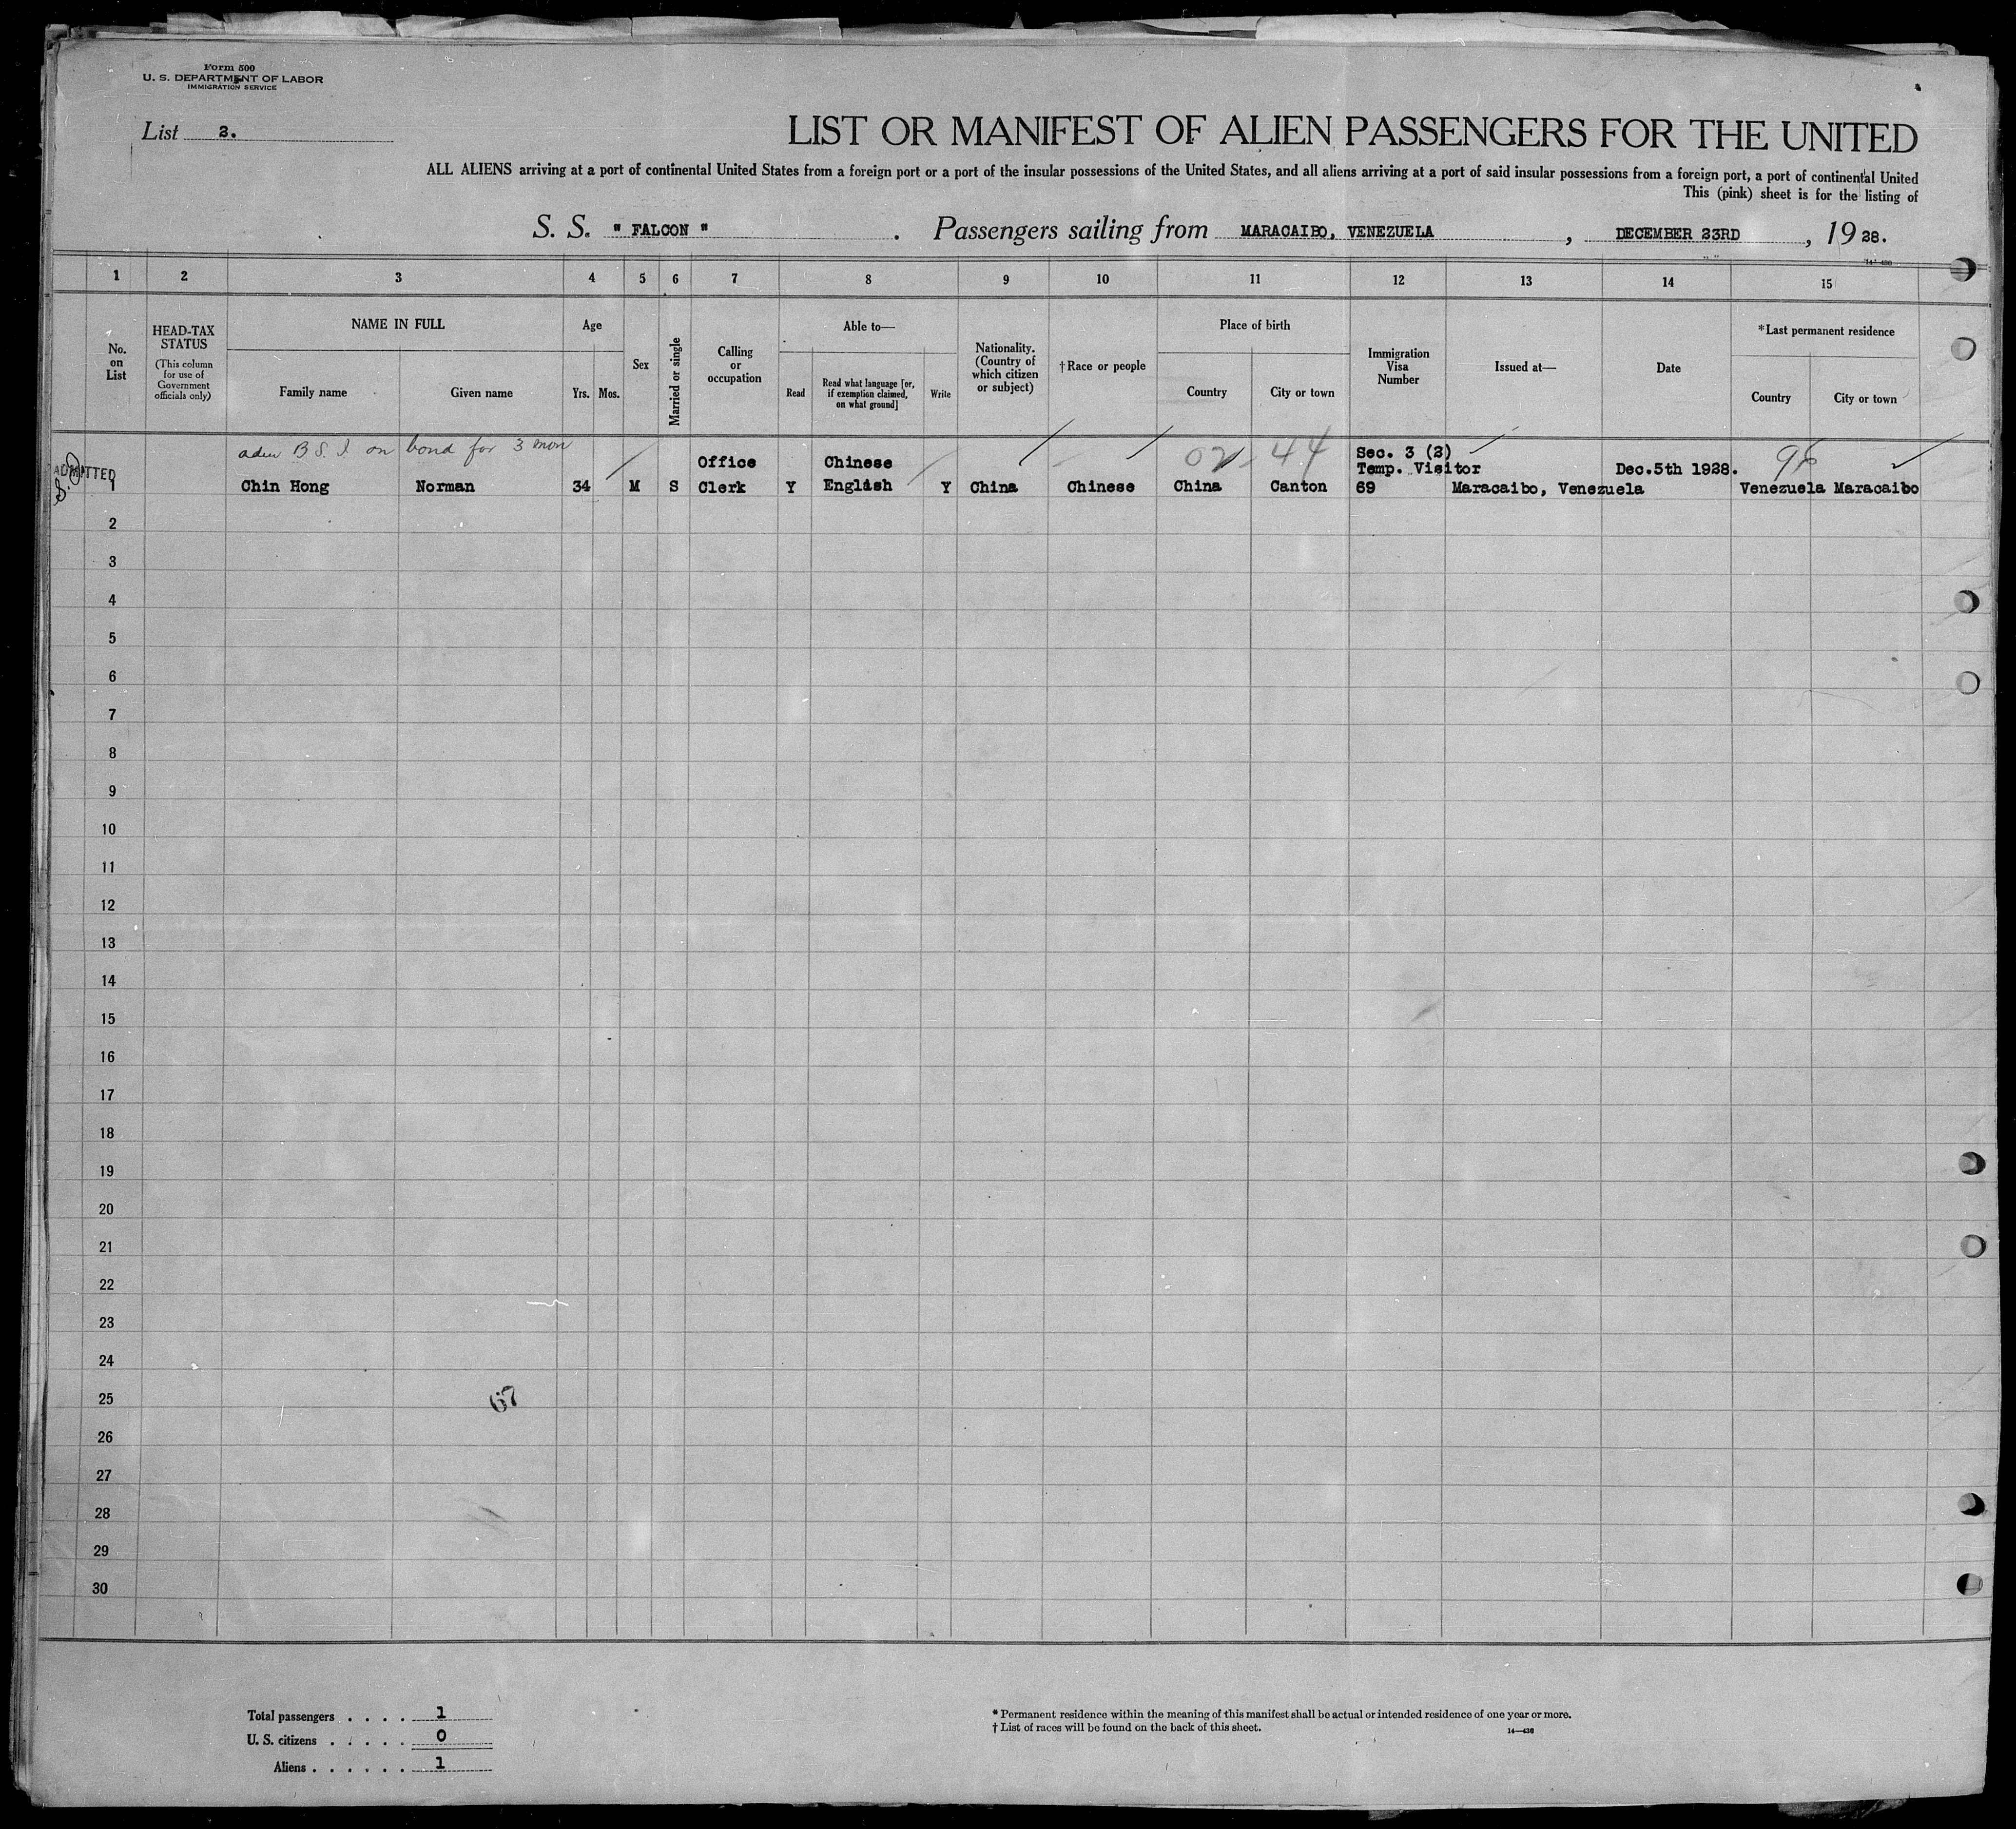 Form 500
U. S. DEPARTMENT OF LABOR
IMMIGRATION SERVICE
List 2.
LIST OR MANIFEST OF ALIEN PASSENGERS FOR THE UNITED
ALL ALIENS arriving at a port of continental United States from a foreign port or a port of the insular possessions of the United States, and all aliens arriving at a port of said insular possessions from a foreign port, a port of continental United
This (pink) sheet is for the listing of
S. S. " FALCON " . Passengers sailing from MARACAIBO, VENEZUELA , DECEMBER 23RD , 19 28.
14-430
1 2 3 4 5 6 7 8 9 10 11 12 13 14 15
No. on List
HEAD-TAX STATUS
(This column for use of Government officials only)
NAME IN FULL
Family name Given name
Age
Yrs. Mos.
Sex
Married or single
Calling or occupation
Able to—
Read
Read what language [or, if exemption claimed, on what ground]
Write
Nationality. (Country of which citizen or subject)
†Race or people
Place of birth
Country City or town
Immigration Visa Number
Issued at—
Date
*Last permanent residence
Country City or town
B S. I on bond for 3 mon
02 - 44
Sec. 3 (2)
96
ADMITTED
Office Chinese Temp. Visitor Dec.5th 1928.
1 Chin Hong Norman 34 M S Clerk Y English Y China Chinese China Canton 69 Maracaibo, Venezuela Venezuela Maracaibo
2
3
4
5
6
7
8
9
10
11
12
13
14
15
16
17
18
19
20
21
22
23
24
25
67
26
27
28
29
30
Total passengers . . . . 1
U. S. citizens . . . . . 0
Aliens . . . . . . 1
* Permanent residence within the meaning of this manifest shall be actual or intended residence of one year or more.
† List of races will be found on the back of this sheet.
14—430